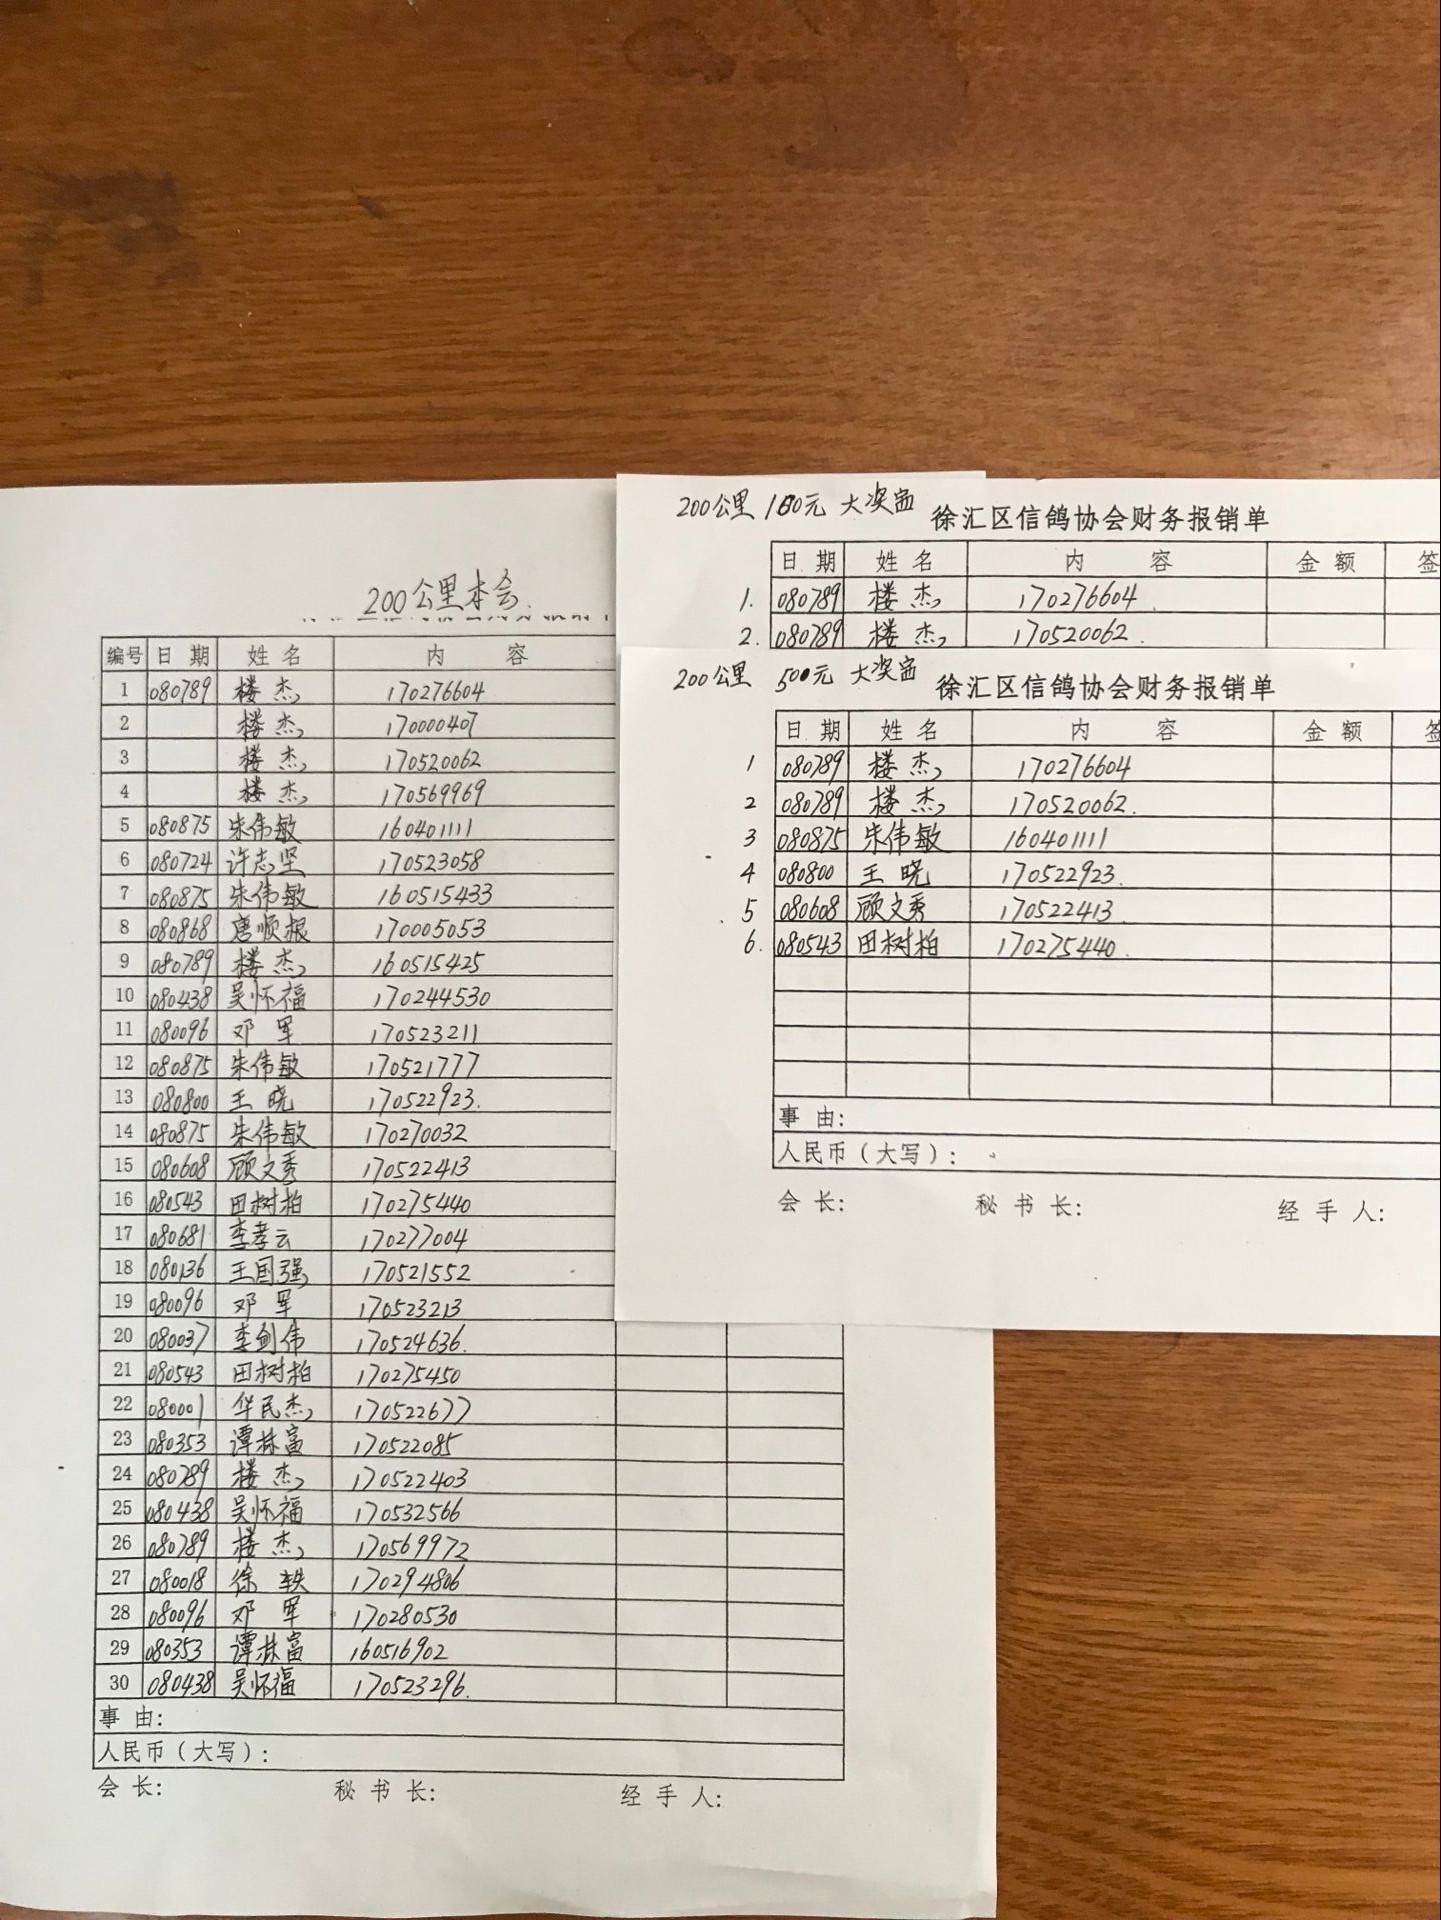 200公里本会
编号 日期 姓名 内容
1 080789 楼杰 170276604
2 楼杰 170000407
3 楼杰 170520062
4 楼杰 170569969
5 080875 朱伟敏 160401111
6 080724 许志坚 170523058
7 080875 朱伟敏 160515433
8 080868 唐顺根 170005053
9 080789 楼杰 160515425
10 080438 吴怀福 170244530
11 080096 邓军 170523211
12 080875 朱伟敏 170521777
13 080800 王晓 170522923.
14 080875 朱伟敏 170270032
15 080608 顾文秀 170522413
16 080543 田树柏 170275440
17 080681 李孝云 170277004
18 080136 王国强 170521552
19 080096 邓军 170523213
20 080037 李剑伟 170524636.
21 080543 田树柏 170275450
22 080001 华民杰 170522677
23 080353 谭林富 170522085
24 080789 楼杰 170522403
25 080438 吴怀福 170532566
26 080789 楼杰 170569972
27 080018 徐轶 170294806
28 080096 邓军 170280530
29 080353 谭林富 160516902
30 080438 吴怀福 170523296.
事由:
人民币(大写):
会长: 秘书长: 经手人:
200公里 100元 大奖 徐汇区信鸽协会财务报销单
日期 姓名 内容 金额 签
1. 080789 楼杰 170276604
2. 080789 楼杰 170520062.
200公里 500元 大奖 徐汇区信鸽协会财务报销单
日期 姓名 内容 金额 签
1 080789 楼杰 170276604
2 080789 楼杰 170520062.
3 080875 朱伟敏 160401111
4 080800 王晓 170522923.
5 080608 顾文秀 170522413
6. 080543 田树柏 170275440.
事由:
人民币(大写):
会长: 秘书长: 经手人: